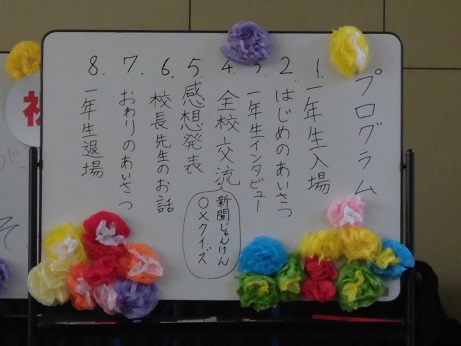 プログラム
1. 一年生入場
2. はじめのあいさつ
3. 一年生インタビュー
4. 全校交流
新聞じゃんけん
○×クイズ
5. 感想発表
6. 校長先生のお話
7. おわりのあいさつ
8. 一年生退場